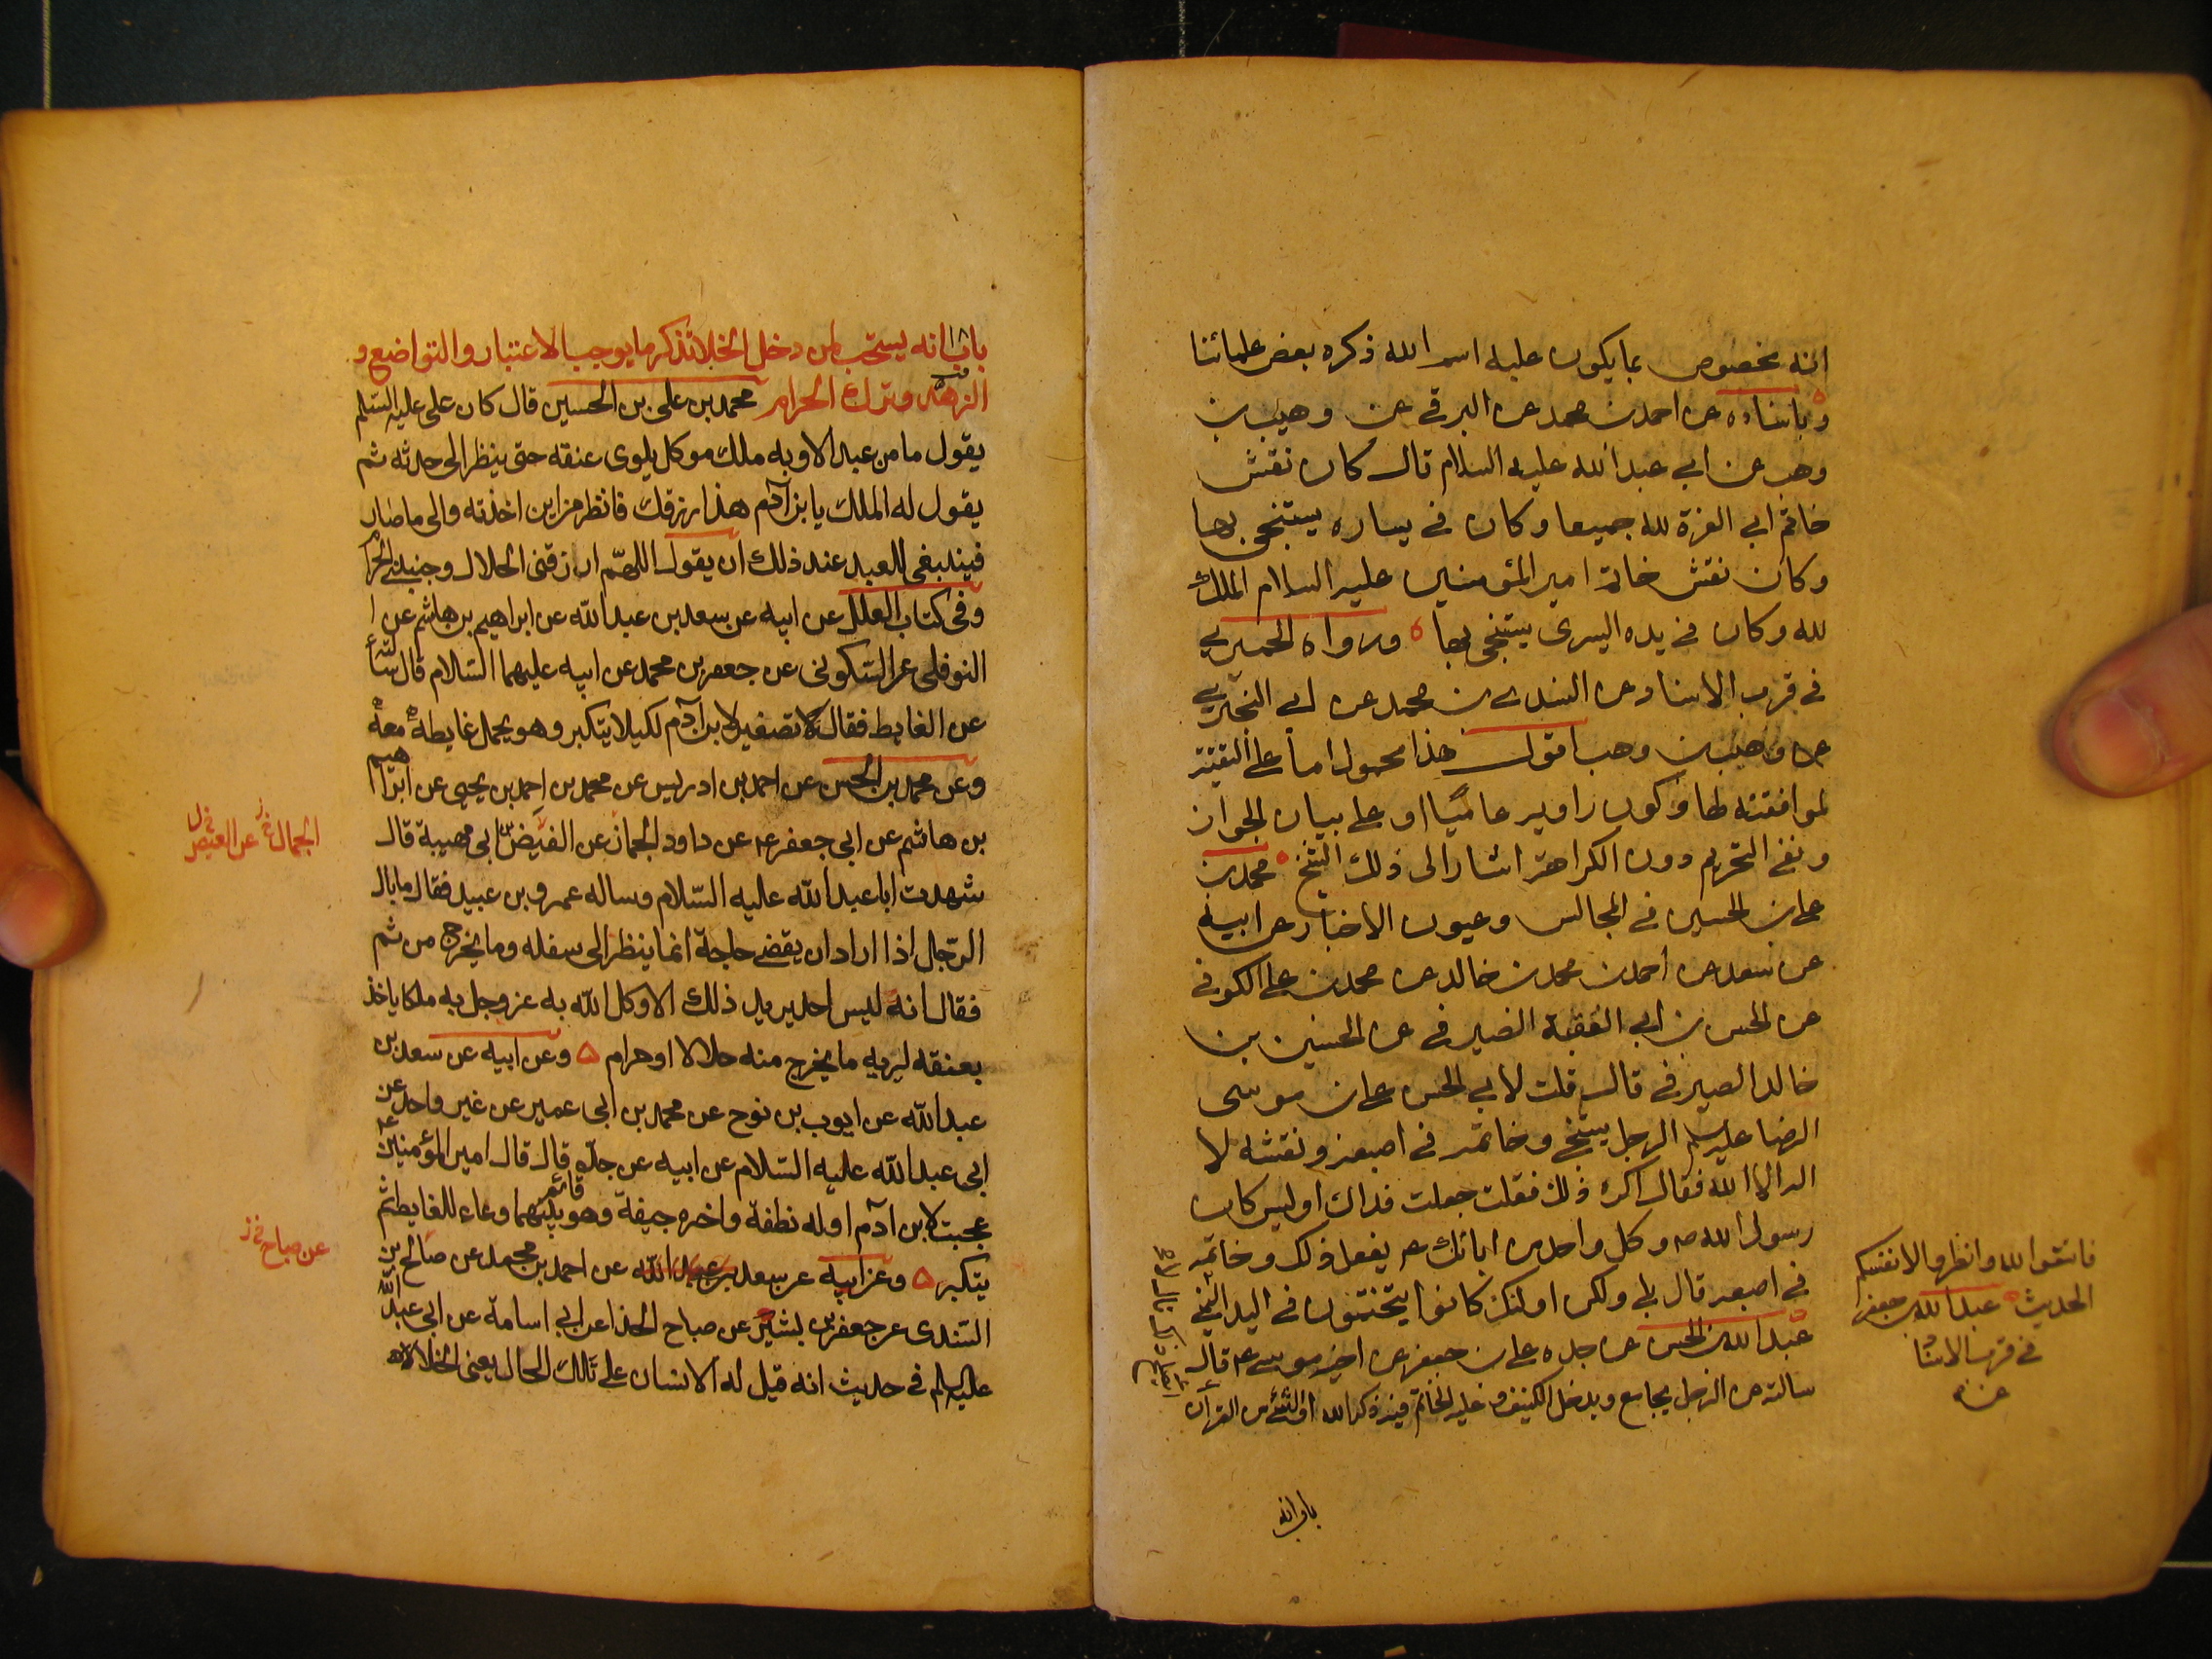 انه مخصوص بما يكون عليه اسم الله ذكره بعض علمائنا
وباسناده عن احمد بن محمد عن البرقي عن وهب بن
وهب عن ابي عبد الله عليه السلام قال كان نقش
خاتم ابي العزة لله جميعا وكان في يساره يستنجى بها
وكان نقش خاتم امير المؤمنين عليه السلام الملك
لله وكان في يده اليسرى يستنجى بها ورواه الحميري
في قرب الاسناد عن السندي بن محمد عن ابي البختري
عن وهب بن وهب اقول هذا محمول اما على التقية
لموافقته لها وكون راويه عاميا او على بيان الجواز
ونفي التحريم دون الكراهة اشار الى ذلك الشيخ محمد بن
علي بن الحسين في المجالس وعيون الاخبار عن ابيه
عن سعد عن احمد بن محمد بن خالد عن محمد بن علي الكوفي
عن الحسن بن ابي العقبة الصيرفي عن الحسين بن
خالد الصيرفي قال قلت لابي الحسن علي بن موسى
الرضا عليه السلم الرجل يستنجي وخاتمه في اصبعه ونقشه لا
اله الا الله فقال اكره ذلك فقلت جعلت فداك اوليس كان
رسول الله ص وكل واحد من ابائك ع يفعل ذلك وخاتمه
في اصبعه قال بلى ولكن اولئك كانوا يتختمون في اليد اليمنى
فاتقوا الله وانظروا لانفسكم
الحديث عبد الله بن جعفر
في قرب الاسناد
عن
عبد الله بن الحسن عن جده علي بن جعفر عن اخيه موسى ع قال
سالته عن الرجل يجامع ويدخل الكنيف وعليه الخاتم فيه ذكر الله او الشئ من القران
ايصلح ذلك قال لا
باب انه
باب انه يستحب لمن دخل الخلا تذكر ما يوجب الاعتبار والتواضع و
الزهد وترك الحرام محمد بن علي بن الحسين قال كان علي عليه السلم
يقول ما من عبد الا وبه ملك موكل يلوى عنقه حتى ينظر الى حدثه ثم
يقول له الملك يا بن آدم هذا رزقك فانظر من اين اخذته والى ما صار
فينبغى للعبد عند ذلك ان يقول اللهم ارزقنى الحلال وجنبنى الحرام
وفى كتاب العلل عن ابيه عن سعد بن عبد الله عن ابراهيم بن هاشم عن ا
النوفلى عن السكونى عن جعفر بن محمد عن ابيه عليهما السلام قال سالته
عن الغايط فقال تصغير لابن آدم لكيلا يتكبر وهو يحمل غايطه معه
وعن محمد بن الحسن عن احمد بن ادريس عن محمد بن احمد بن يحيى عن ابراهيم
بن هاشم عن ابى جعفر ع عن داود الجماز عن الفيض بن ابى مهيبة قال
الجمال خ ز عن العيص خ ل
شهدت ابا عبد الله عليه السلام وساله عمرو بن عبيد فقال ما بال
الرجل اذا اراد ان يقضى حاجة انما ينظر الى سفله وما يخرج من ثم
فقال انه ليس احد يريد ذلك الا وكل الله به عز وجل به ملكا ياخذ
بعنقه ليريه ما يخرج منه حلالا او حرام ۵ وعن ابيه عن سعد بن
عبد الله عن ايوب بن نوح عن محمد بن ابى عمير عن غير واحد عن
ابى عبد الله عليه السلام عن ابيه عن جده قال قال امير المؤمنين ع
عجبت لابن آدم اوله نطفة واخره جيفة وهو قائم بينهما وعاء للغايط ثم
يتكبر ۵ وعن ابيه عن سعد بن عبد الله عن احمد بن محمد عن صالح بن
عن صباح خ ز
السندى عن جعفر بن بشير عن صباح الحذا عن ابي اسامة عن ابى عبد الله
عليه السلم في حديث انه قيل له الانسان على تلك الحال يعنى الخلا